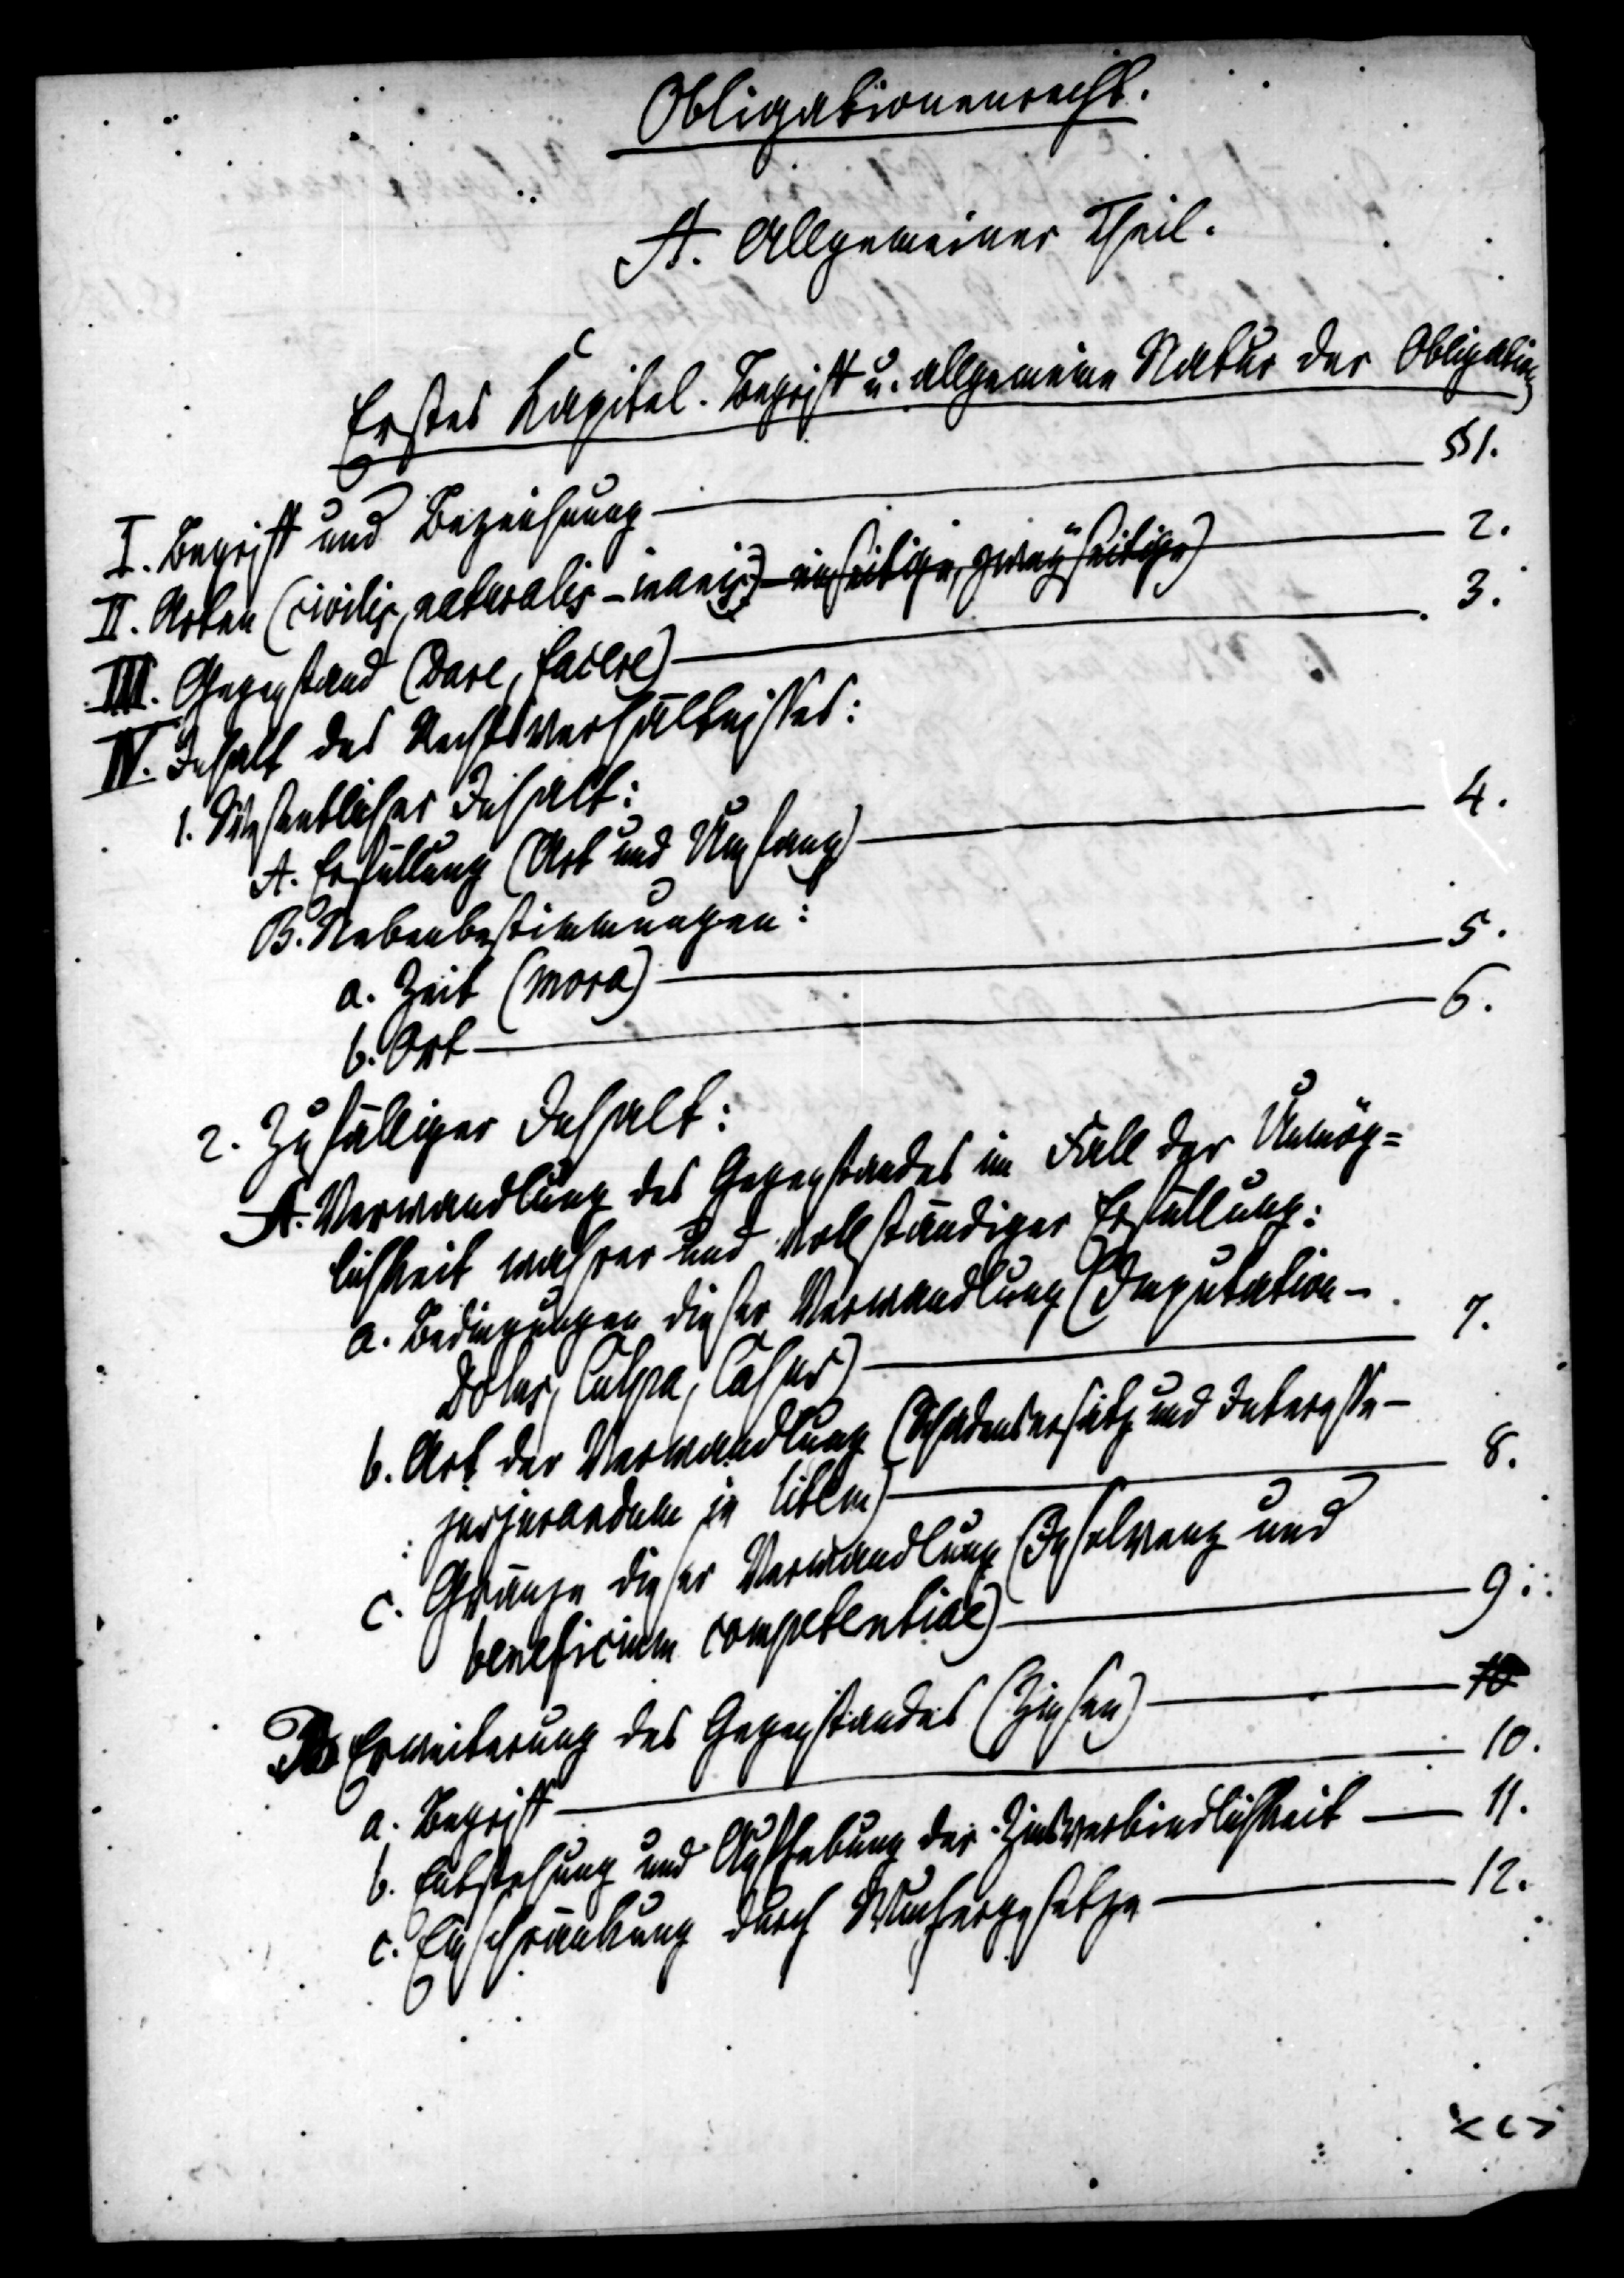 Obligationenrecht.
A. Allgemeiner Theil.
Erstes Kapitel. Begriff u. allgemeine Natur der Obligation
I. Begriff und Bezeichnung — §§ 1.
II. Arten (civilis, naturalis – inanis) einseitige, zweÿseitige) — 2.
III. Gegenstand (Dare, facere) — 3.
IV. Inhalt des Rechtsverhältnisses:
1. Wesentlicher Inhalt:
A. Erfüllung (Art und Umfang) — 4.
B. Nebenbestimmungen:
a. Zeit (mora) — 5.
b. Ort — 6.
2. Zufälliger Inhalt:
A. Verwandlung des Gegenstandes im Fall der Unmög=
lichkeit wahrer und vollständiger Erfüllung:
a. Bedingungen dieser Verwandlung (Imputation –
Dolus, Culpa, Casus) — 7.
b. Art der Verwandlung (Schadensersatz und Interesse –
jusjurandum in litem) — 8.
c. Gränze dieser Verwandlung (Insolvenz und
beneficium competentiae) — 9.
B. Erweiterung des Gegenstandes (Zinsen) — 10
a. Begriff — 10.
b. Entstehung und Aufhebung der Zinsverbindlichkeit — 11.
c. Einschränkung durch Wuchergesetze — 12.